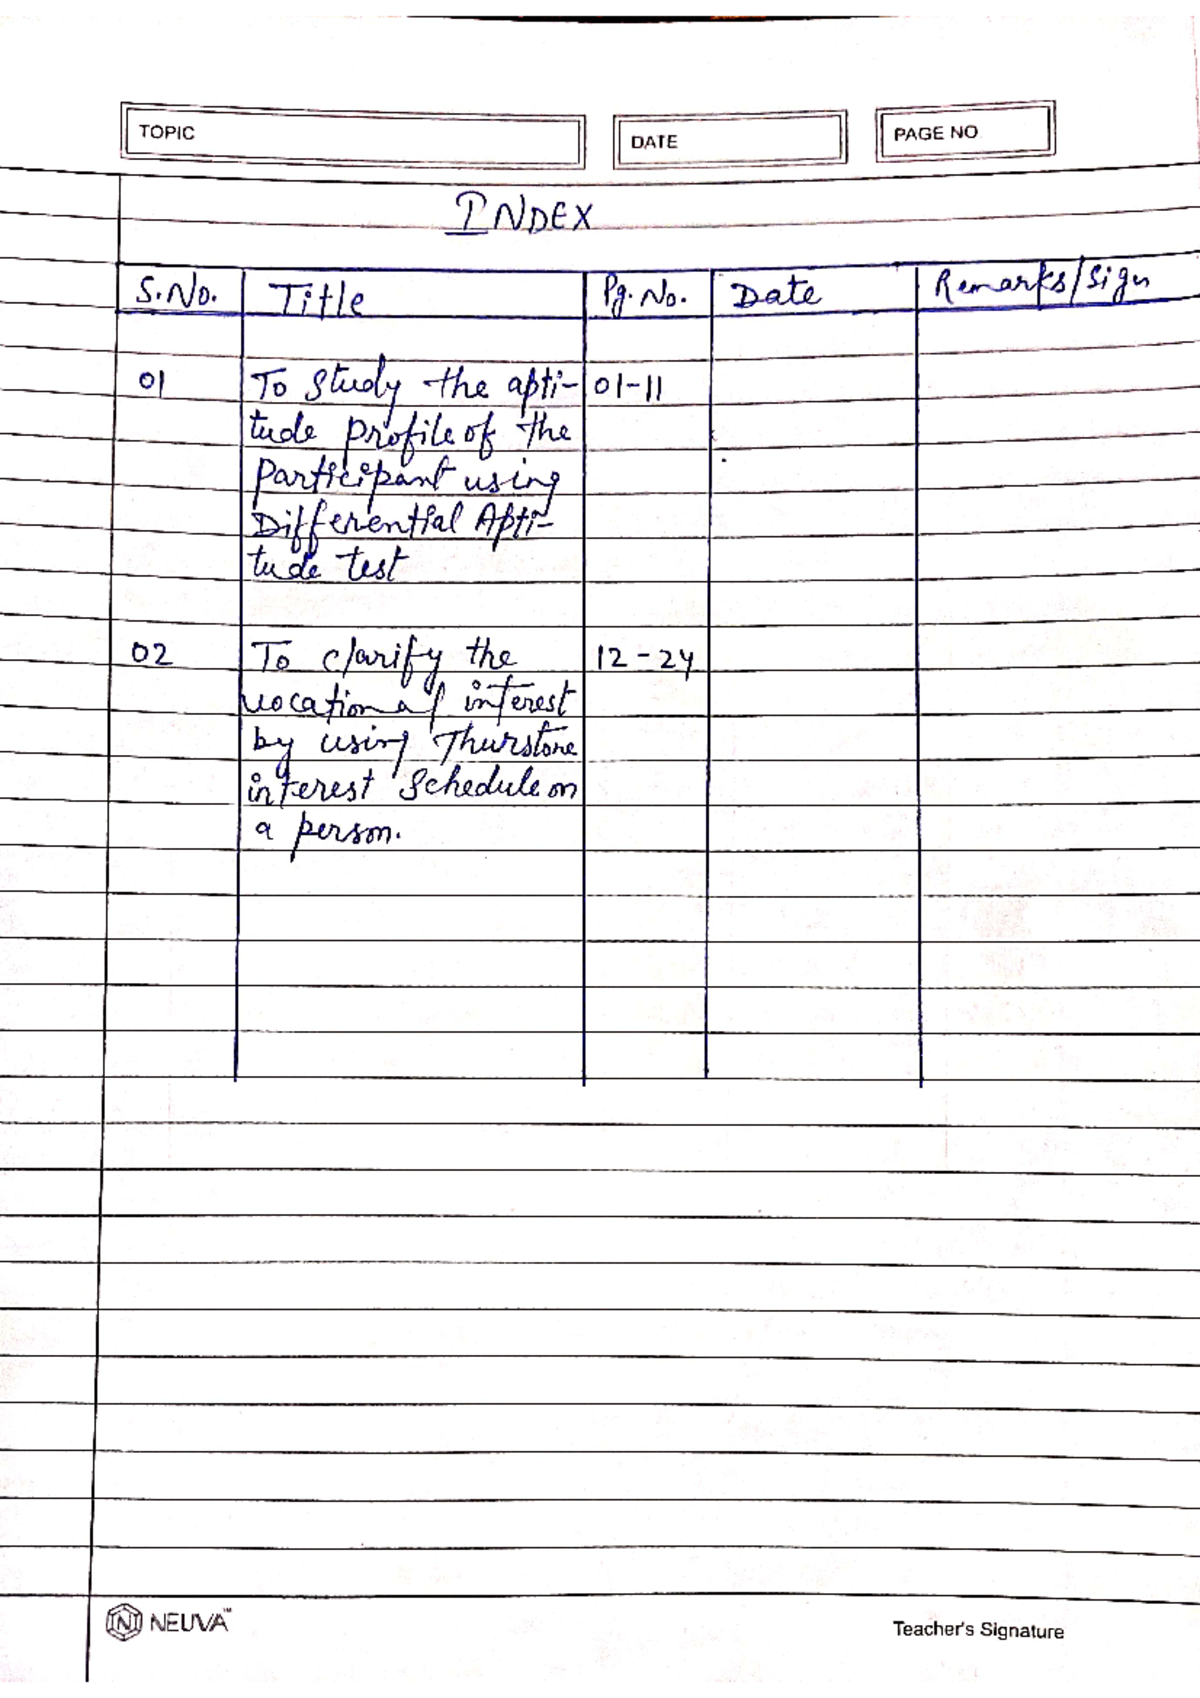 TOPIC DATE PAGE NO
INDEX
S.No. Title Pg. No. Date Remarks/Sign
01 To Study the apti- 01-11
tude profile of the
Participant using
Differential Apti-
tude test
02 To clarify the 12-24
vocational interest
by using Thurstone
interest Schedule on
a person.
NEUVA™ Teacher's Signature